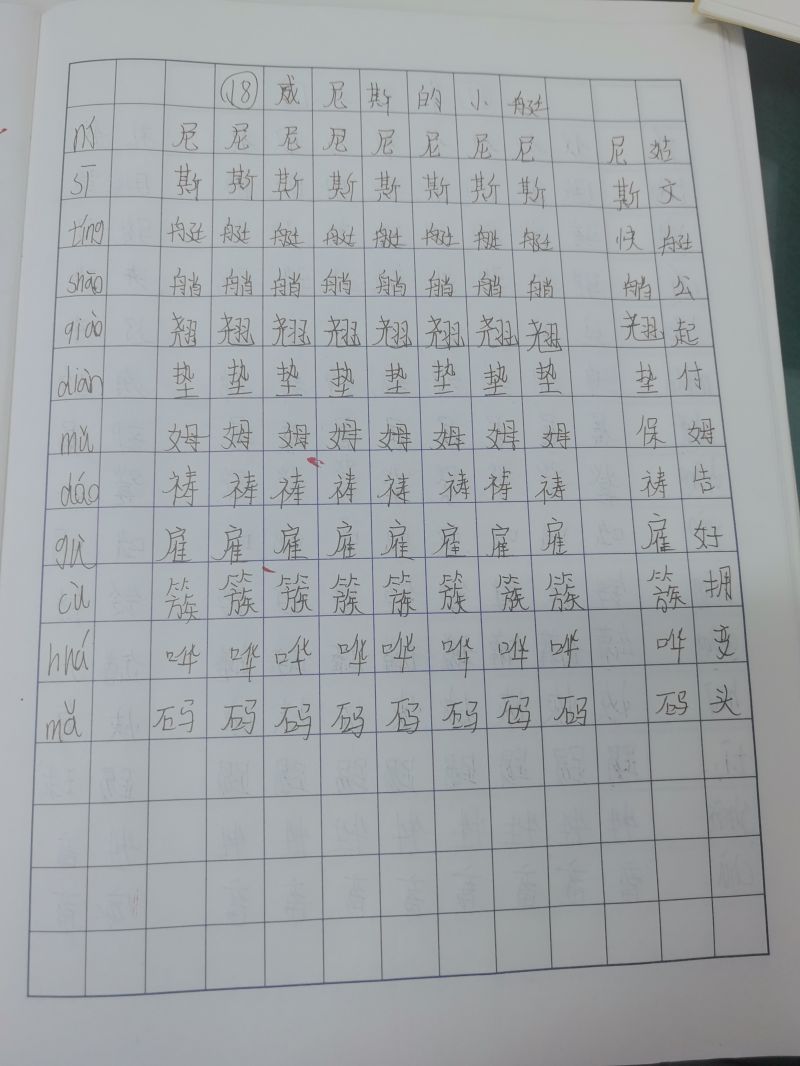 18 威尼斯的小艇
ní 尼 尼 尼 尼 尼 尼 尼 尼 尼姑
sī 斯 斯 斯 斯 斯 斯 斯 斯 斯文
tíng 艇 艇 艇 艇 艇 艇 艇 艇 快艇
shāo 艄 艄 艄 艄 艄 艄 艄 艄 艄公
qiào 翘 翘 翘 翘 翘 翘 翘 翘 翘起
diàn 垫 垫 垫 垫 垫 垫 垫 垫 垫付
mǔ 姆 姆 姆 姆 姆 姆 姆 姆 保姆
dáo 祷 祷 祷 祷 祷 祷 祷 祷 祷告
gù 雇 雇 雇 雇 雇 雇 雇 雇 雇好
cù 簇 簇 簇 簇 簇 簇 簇 簇 簇拥
huá 哗 哗 哗 哗 哗 哗 哗 哗 哗变
mǎ 码 码 码 码 码 码 码 码 码头